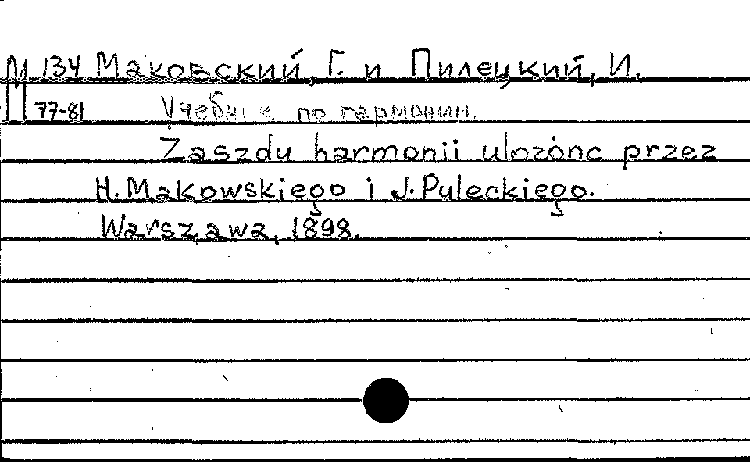 М 134 Маковский, Г. и Пилецкий, И.
77-81 Учебн по гармонии.
Zaszdy harmonii ulozónc przez
H. Makowskiego i J. Puleckiego.
Warszawa, 1898.